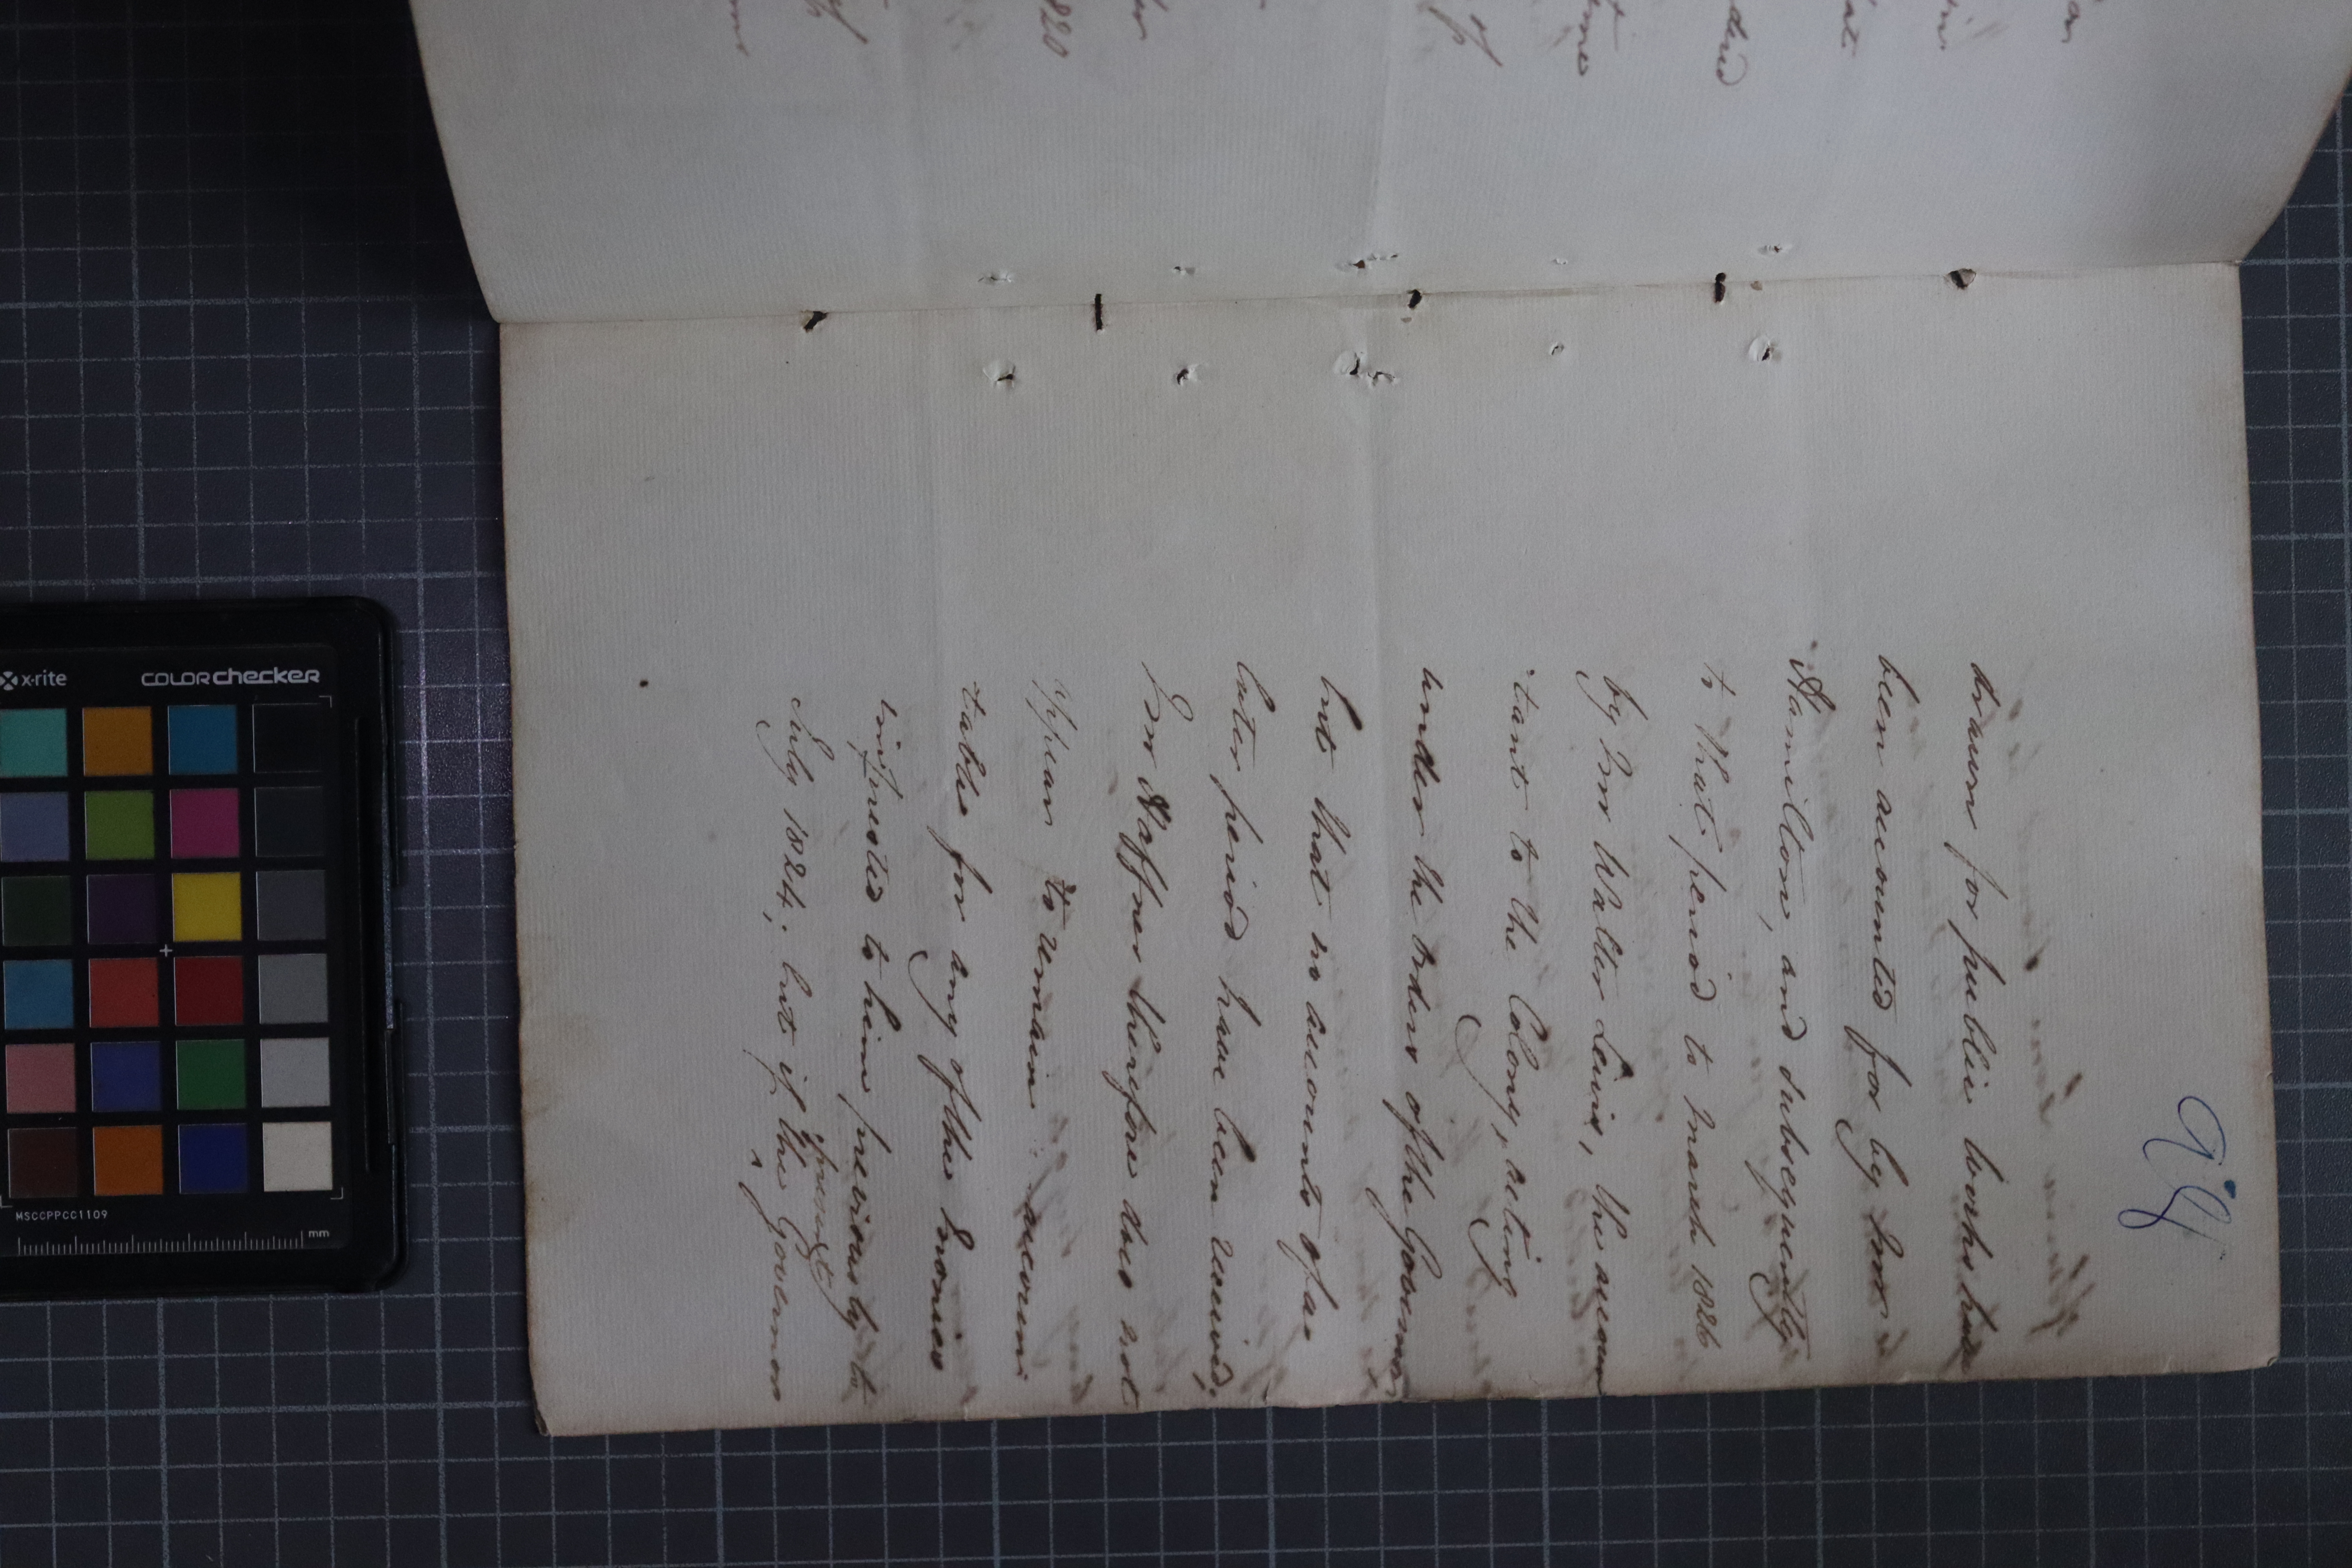 98
drawn for public works have
been accounted for by Mr
Hamilton, and subsequently
to that period to March 1826
by Mr Walter Lewis, the accoun
tant to the Colony, acting
under the orders of the Governor
but that no accounts of a
later period have been received,
Mr Haffner therefore does not
appear to remain accoun
table for any of the monies
imprested to him previously to
July 1824, but if the present Governor
x-rite
colorchecker
MSCCPPCC1109
mm
820
of